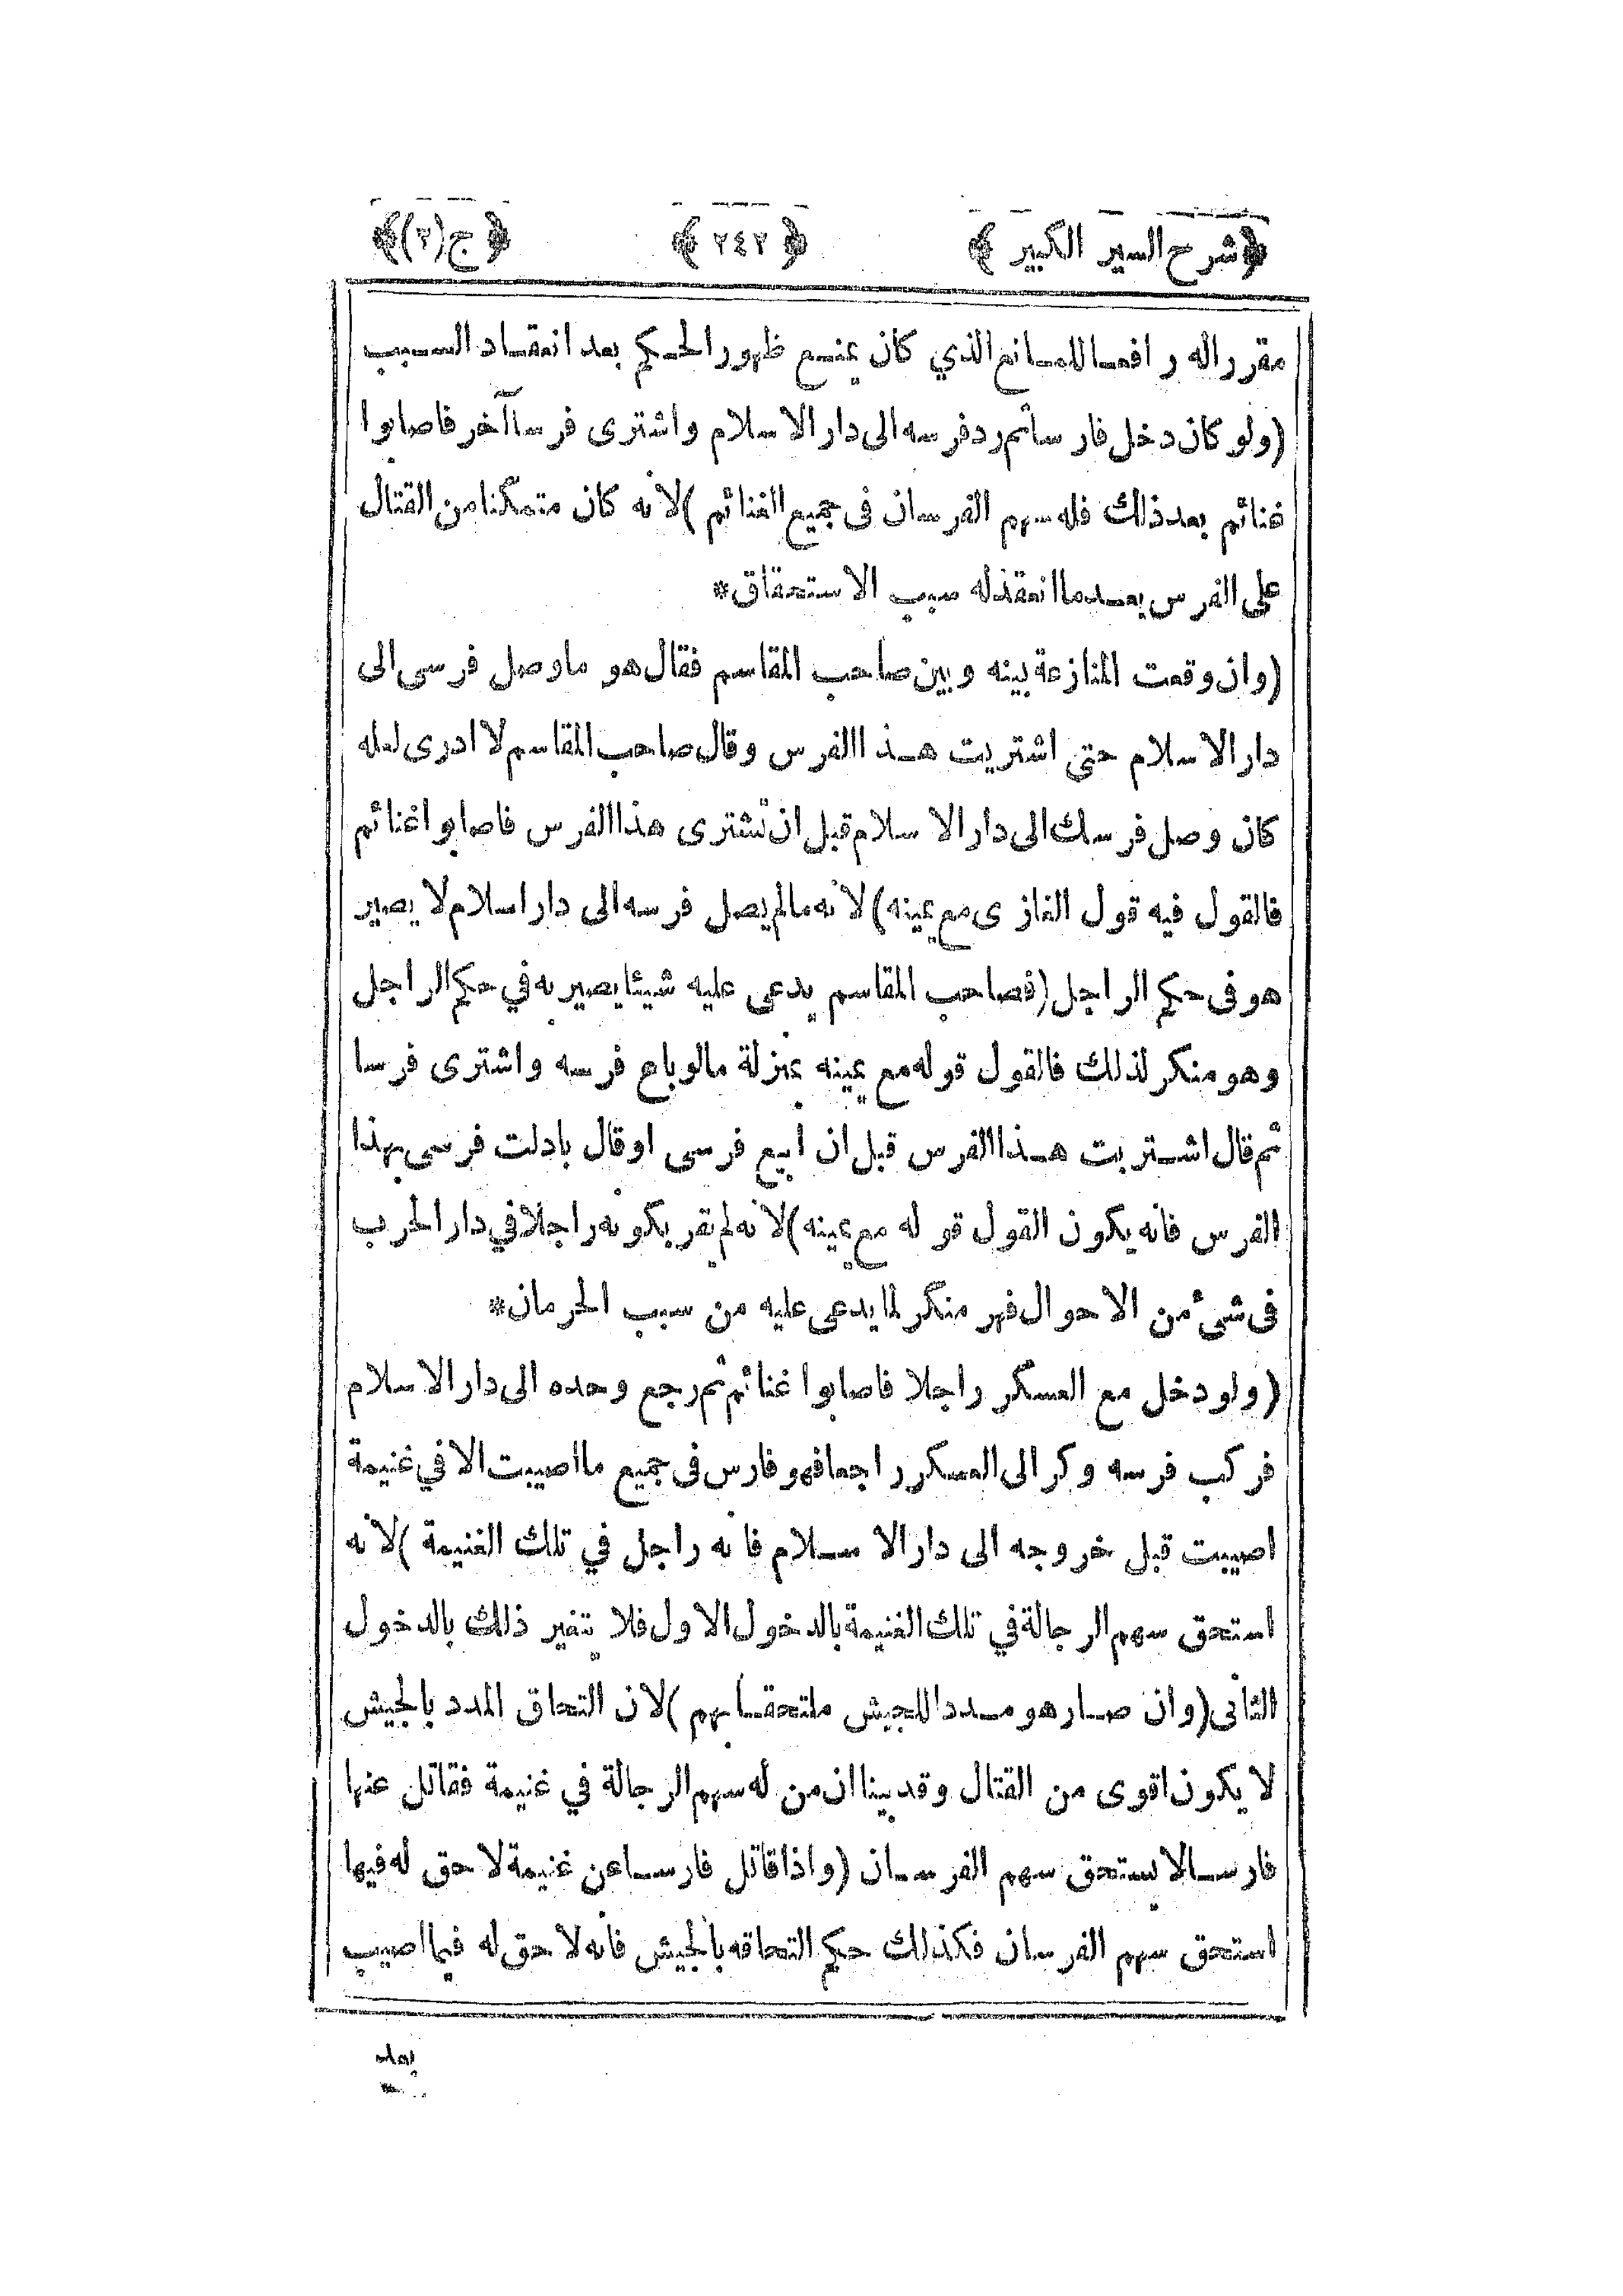 ﴿شرح السير الكبير﴾ ﴿٢٤٢﴾ ﴿ج(٢)﴾
مقررا له رافعا للمانع الذي كان يمنع ظهور الحكم بعد انعقاد السبب
(ولو كان دخل فارسا ثم رد فرسه الى دار الاسلام واشترى فرسا آخر فاصابوا
غنائم بعد ذلك فله سهم الفرسان فى جميع الغنائم) لانه كان متمكنا من القتال
على الفرس بعد ما انعقد له سبب الاستحقاق*
(وان وقعت المنازعة بينه وبين صاحب المقاسم فقال هو ما وصل فرسى الى
دار الاسلام حتى اشتريت هذا الفرس وقال صاحب المقاسم لا ادرى لعله
كان وصل فرسك الى دار الاسلام قبل ان تشترى هذا الفرس فاصابوا غنائم
فالقول فيه قول الغازى مع يمينه) لانه ما لم يصل فرسه الى دار اسلام لا يصير
هو فى حكم الراجل (فصاحب المقاسم يدعى عليه شيئا يصير به في حكم الراجل
وهو منكر لذلك فالقول قوله مع يمينه بمنزلة ما لو باع فرسه واشترى فرسا
ثم قال اشتريت هذا الفرس قبل ان ابيع فرسى او قال بادلت فرسى بهذا
الفرس فانه يكون القول قوله مع يمينه) لانه لم يقر بكونه راجلا في دار الحرب
فى شئ من الاحوال فهر منكر لما يدعى عليه من سبب الحرمان*
(ولو دخل مع العسكر راجلا فاصابوا غنائم ثم رجع وحده الى دار الاسلام
فركب فرسه وكر الى العسكر راجعا فهو فارس فى جميع ما اصيبت الا في غنيمة
اصيبت قبل خروجه الى دار الاسلام فانه راجل في تلك الغنيمة) لانه
استحق سهم الرجالة في تلك الغنيمة بالدخول الاول فلا يتغير ذلك بالدخول
الثانى (وان صار هو مددا للجيش ملتحقا بهم) لان التحاق المدد بالجيش
لا يكون اقوى من القتال وقد بينا ان من له سهم الرجالة في غنيمة فقاتل عنها
فارسا لا يستحق سهم الفرسان (واذا قاتل فارسا عن غنيمة لا حق له فيها
استحق سهم الفرسان فكذلك حكم التحاقه بالجيش فانه لا حق له فيما اصيب
بعد